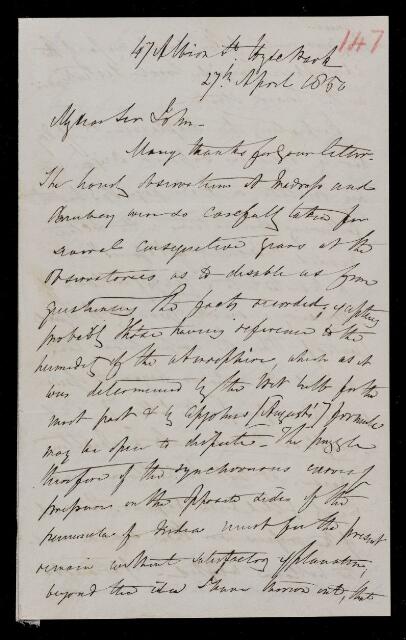 147
47 Albion St. Hyde Park
27th April 1850
My dear Sir John -
Many thanks for your letter.
The hourly observations at Madras and
Bombay were so carefully taken for
several consecutive years at the
Observatories as to disable us from
questioning the facts recorded, excepting
probably those having reference to the
humidity of the atmosphere, which as it
was determined by the Wet bulb for the
most part & by Apjohns (Augusts') formula
may be open to dispute - The puzzle
therefore of the synchronous curves of
pressure on the opposite sides of the
peninsula of India must for the present
remain without satisfactory explanation,
beyond the idea I have thrown out, that